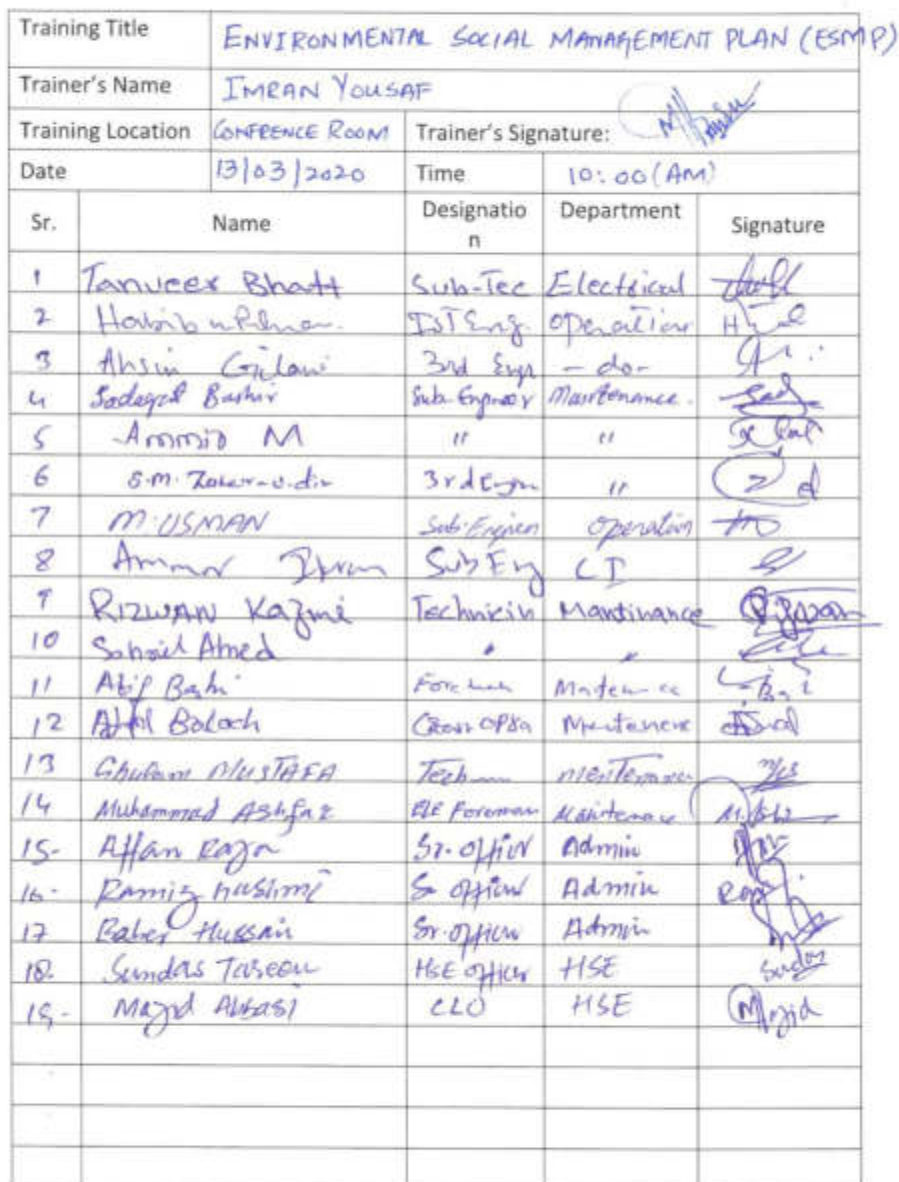 Training Title ENVIRONMENTAL SOCIAL MANAGEMENT PLAN (ESMP)
Trainer's Name IMRAN YOUSAF
Training Location CONFRENCE ROOM Trainer's Signature:
Date 13/03/2020 Time 10:00(AM)
Sr. Name Designatio
n Department Signature
1 Tanveer Bhatt Sub-Tec Electrical
2 Operation
3 Ahsin Gilani 3rd Engr - do-
4 Sadaqat Bashir Sub-Engineer Maintenance.
5 Ammid M " "
6 S.M. 3rd Engr "
7 M. USMAN Sub.Engieer Operation
8 Ammar Sub Eng
9 RIZWAN Kazmi Technicin Mantinance Rizwan
10 Sohail Ahmed " "
11 Atif Foreman
12 Baloch Maintenance
13 Ghulam MUSTAFA Tech Mentenance
14 Muhammad Ashfaq ELE Foreman Maintenance
15- Affan Raja Sr. officer Admin
16- Ramiz hashmi Sr officer Admin
17 Baber Hussain Sr. officer Admin
18. Sundas HSE officer HSE
19- Majid Abbasi CLO HSE Majid